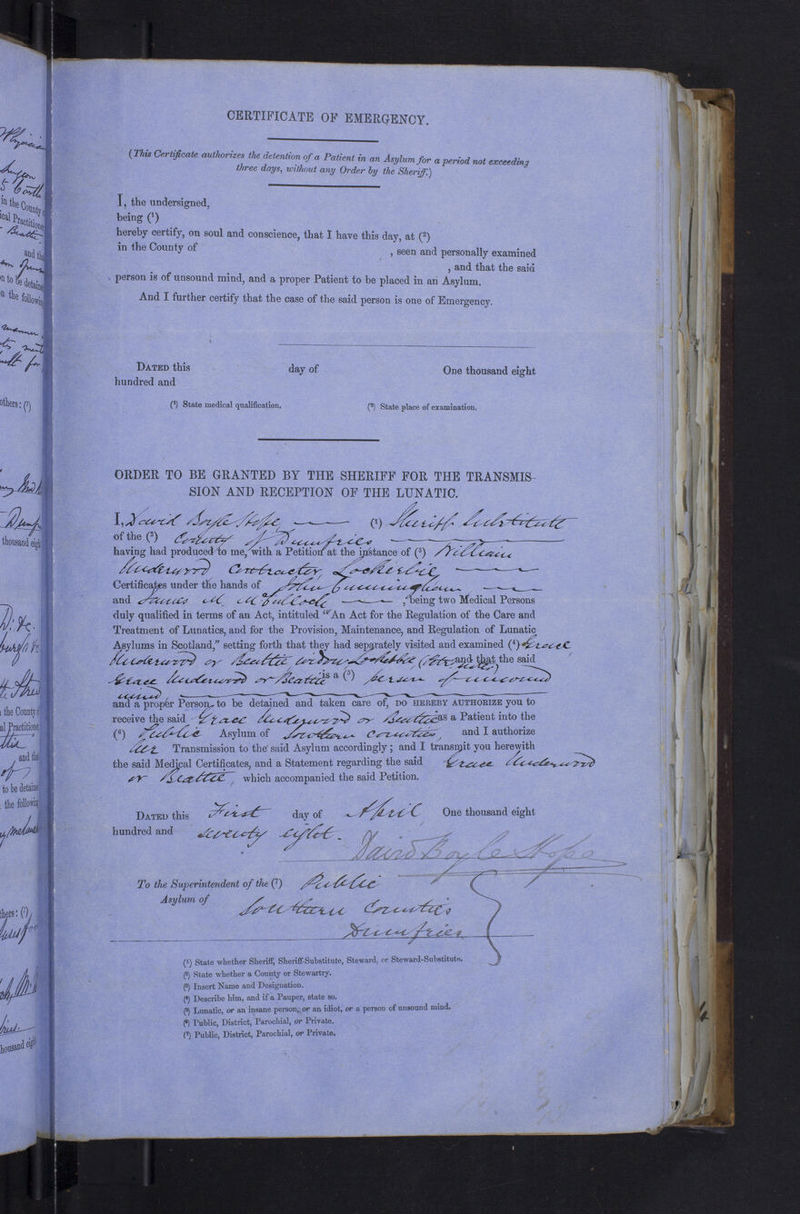 CERTIFICATE OF EMERGENCY.
(This Certificate authorizes the detention of a Patient in an Asylum for a period not exceeding
three days, without any Order by the Sheriff.)
I, the undersigned,
being (¹)
hereby certify, on soul and conscience, that I have this day, at (²)
in the County of , seen and personally examined
, and that the said
person is of unsound mind, and a proper Patient to be placed in an Asylum.
And I further certify that the case of the said person is one of Emergency.
DATED this day of One thousand eight
hundred and
(¹) State medical qualification. (²) State place of examination.
ORDER TO BE GRANTED BY THE SHERIFF FOR THE TRANSMIS-
SION AND RECEPTION OF THE LUNATIC.
I, David Boyle Hope (¹) Sheriff Substitute
of the (²) County of Dumfries
having had produced to me, with a Petition at the instance of (³) William
Underwood Contractor Lockerbie
Certificates under the hands of John Cunningham
and James M McCulloch, being two Medical Persons
duly qualified in terms of an Act, intituled "An Act for the Regulation of the Care and
Treatment of Lunatics, and for the Provision, Maintenance, and Regulation of Lunatic
Asylums in Scotland," setting forth that they had separately visited and examined (⁴) Grace
Underwood or Beattie widow Lockerbie and that the said
Grace Underwood or Beattie is a (⁵) person of unsound
mind,
and a proper Person to be detained and taken care of, DO HEREBY AUTHORIZE you to
receive the said Grace Underwood or Beattie as a Patient into the
(⁶) Public Asylum of Southern Counties, and I authorize
her Transmission to the said Asylum accordingly; and I transmit you herewith
the said Medical Certificates, and a Statement regarding the said Grace Underwood
or Beattie, which accompanied the said Petition.
DATED this First day of April One thousand eight
hundred and seventy eight.
David Boyle Hope
To the Superintendent of the (⁷) Public
Asylum of Southern Counties
Dumfries
(¹) State whether Sheriff, Sheriff-Substitute, Steward, or Steward-Substitute.
(²) State whether a County or Stewartry.
(³) Insert Name and Designation.
(⁴) Describe him, and if a Pauper, state so.
(⁵) Lunatic, or an insane person, or an idiot, or a person of unsound mind.
(⁶) Public, District, Parochial, or Private.
(⁷) Public, District, Parochial, or Private.